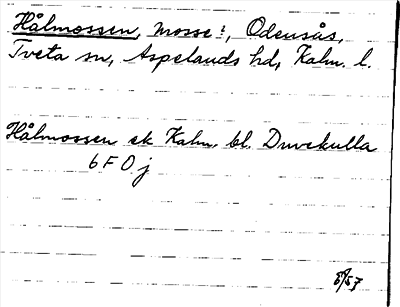 Hålmossen, mosse:, Odensås,
Tveta sn, Aspelands hd, Kalm. l.
Hålmossen ek Kalm. bl. Duvekulla
6 F 0 j